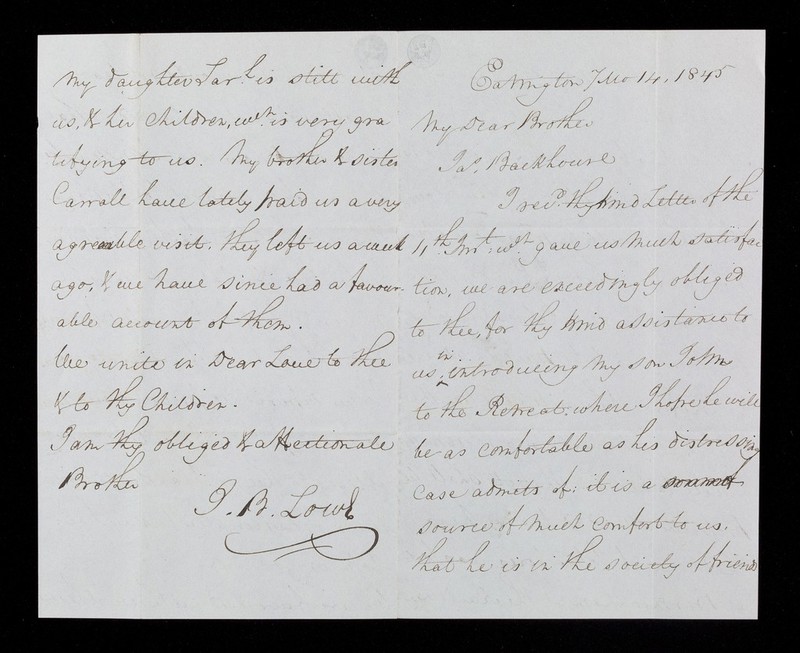 Eatington 7 Mo 14, 1845
My Dear Brother
Jas. Backhouse
I recd. thy kind Letter of the
11th Inst. wch. gave us much satisfac
tion, we are exceedingly obliged
to thee, for thy kind assistance to
us, in introducing my son John
to the Retreat, where I hope he will
be as comfortable as his distressing
case admits of: it is a
source of much comfort to us.
that he is in the society of friends
My daughter Sarh. is still with
us, & her children, wch. is very gra
tifying to us. My brother & sister
Carrall have lately paid us a very
agreeable visit. they left us a week
ago, & we have since had a favour-
able account of them.
We unite in Dear Love to thee
& to thy Children.
I am thy obliged & affectionate
Brother
J. B. Lowe